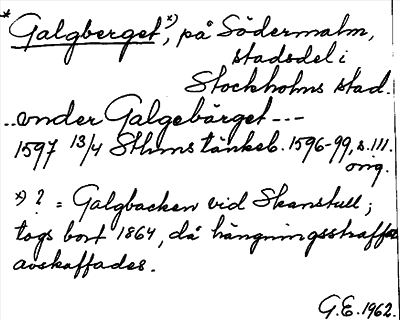 * Galgberget*), på Södermalm,
stadsdel i
Stockholms stad.
..under Galgebärget ---
1597 13/4 Sthms tänkeb. 1596-99, s. 111.
orig.
*) ? = Galgbacken vid Skanstull;
togs bort 1864, då hängningsstraffet
avskaffades.
G.E. 1962.